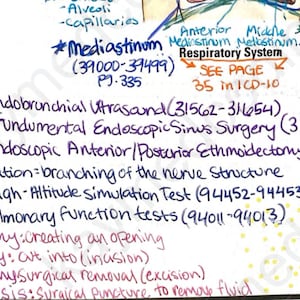 -Alveoli
-Capillaries
Anterior Middle
Mediastinum Mediastinum
*Mediastinum
(39000-39499)
pg.335
Respiratory System
SEE PAGE
35 in ICD-10
ndobronchial Ultrasound (31562-31654)
Fundumental Endoscopic Sinus Surgery (3
ndoscopic Anterior/Posterior Ethmoidectomy
ation=branching of the nerve Structure
igh-Altitude simulation Test (94452-94453
lmonary function tests (94011-94013)
my:creating an opening
y: cut into (incision)
my surgical removal (excision)
sis: surgical Puncture to remove fluid